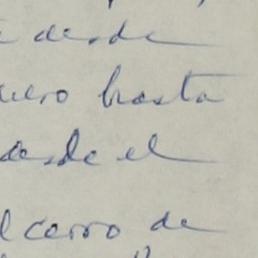 desde
hasta
desde el
cerro de